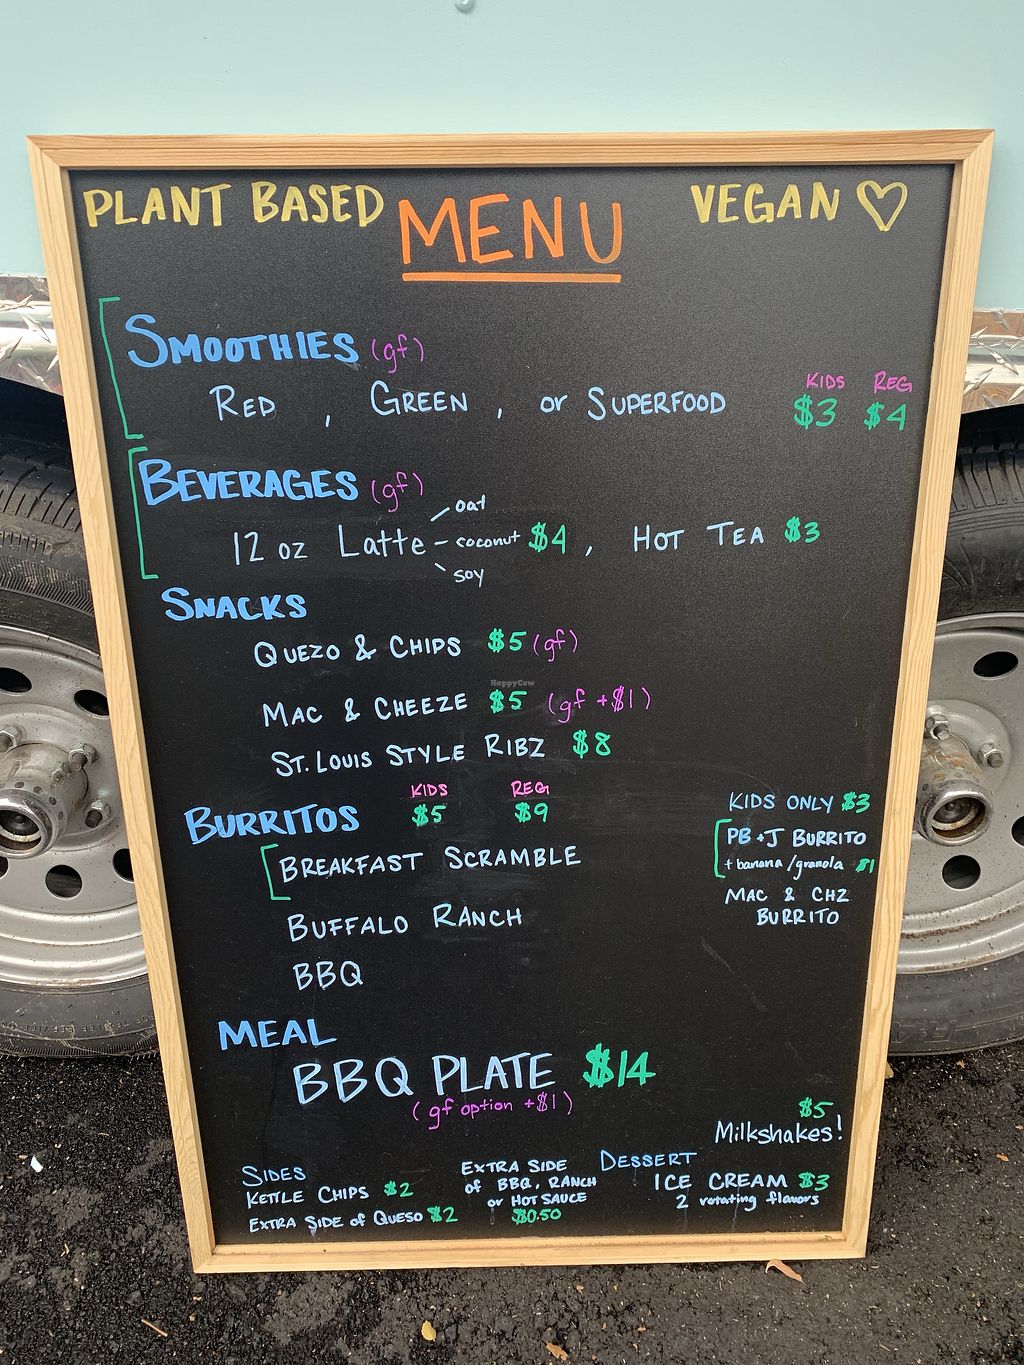 PLANT BASED MENU VEGAN
SMOOTHIES (gf)
KIDS REG
RED, GREEN, or SUPERFOOD $3 $4
BEVERAGES (gf)
12 oz Latte - oat - coconut - soy $4, HOT TEA $3
SNACKS
QUEZO & CHIPS $5 (gf)
HappyCow
MAC & CHEEZE $5 (gf +$1)
ST. LOUIS STYLE RIBZ $8
KIDS REG
BURRITOS $5 $9
BREAKFAST SCRAMBLE
BUFFALO RANCH
BBQ
KIDS ONLY $3
PB+J BURRITO
+ banana/granola $1
MAC & CHZ
BURRITO
MEAL
BBQ PLATE $14
(gf option +$1)
$5
Milkshakes!
SIDES
KETTLE CHIPS $2
EXTRA SIDE of QUESO $2
EXTRA SIDE
of BBQ, RANCH
or HOT SAUCE
$0.50
DESSERT
ICE CREAM $3
2 rotating flavors